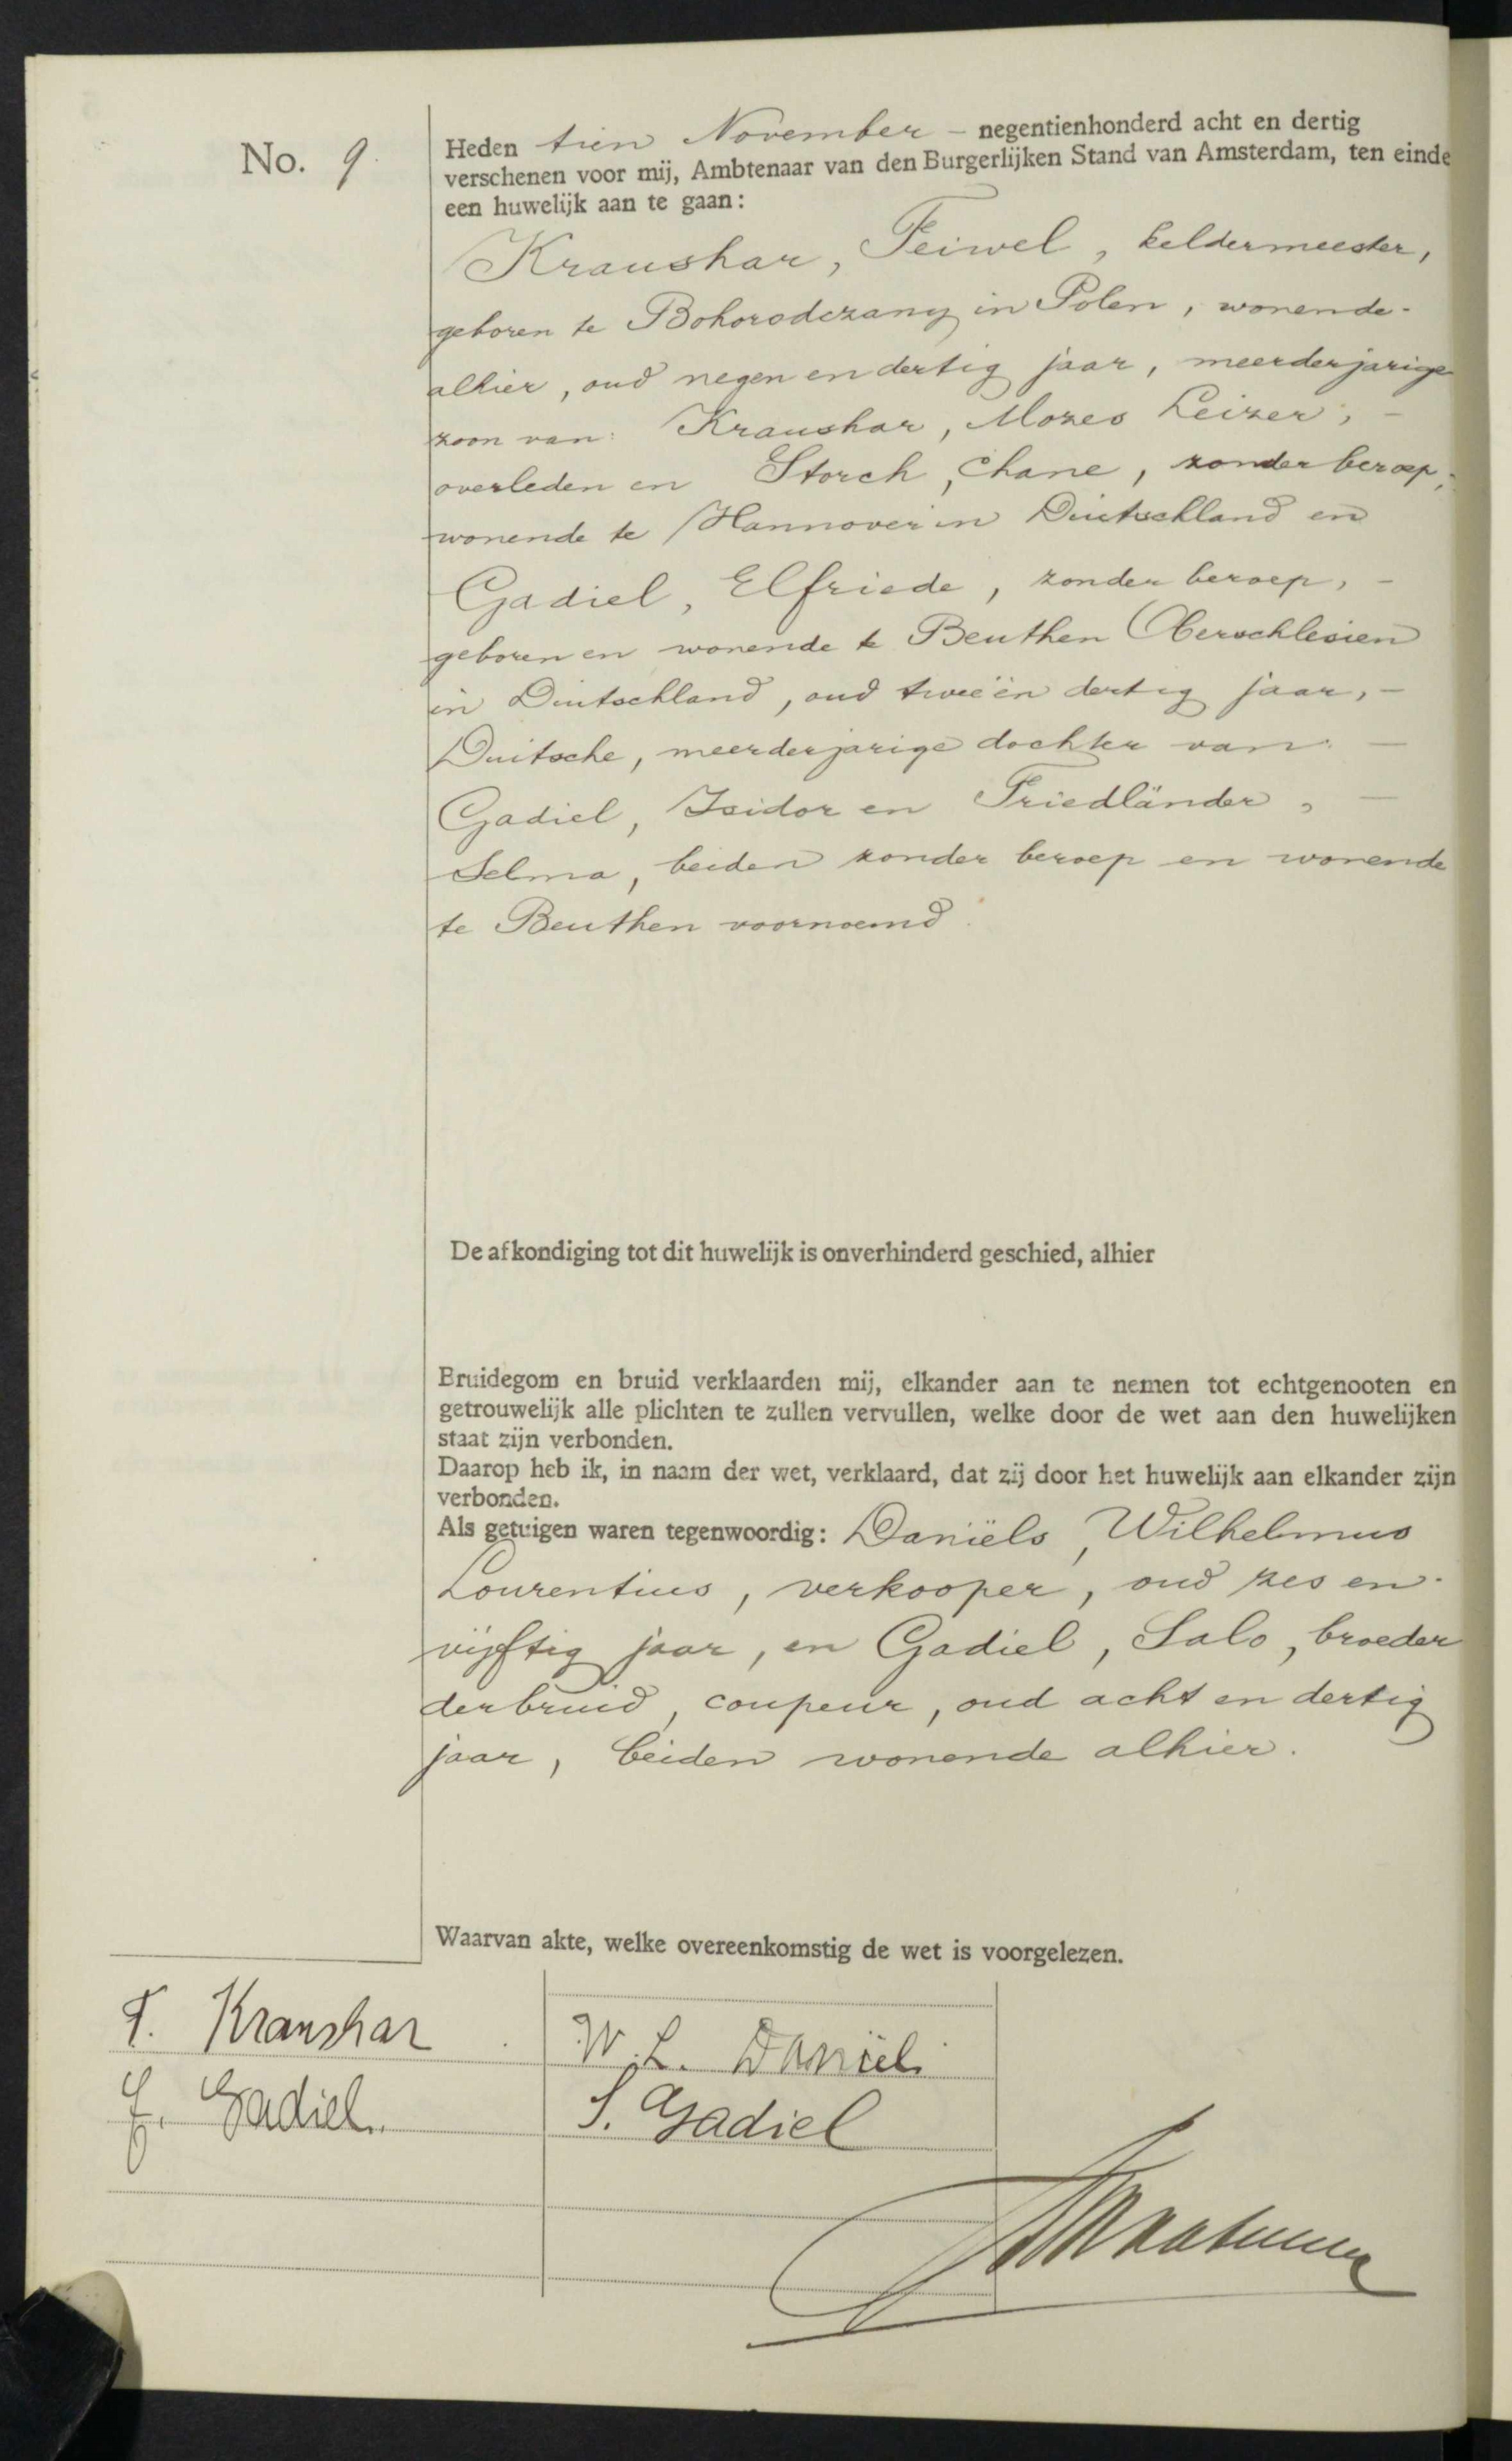 No. 9.
Heden tien November - negentienhonderd acht en dertig
verschenen voor mij, Ambtenaar van den Burgerlijken Stand van Amsterdam, ten einde
een huwelijk aan te gaan:
Kraushar, Feiwel, keldermeester,
geboren te Bohorodczany in Polen, wonende-
alhier, oud negen en dertig jaar, meerderjarige
zoon van: Kraushar, Mozes Leizer, -
overleden en Storch, Chane, zonder beroep,
wonende te Hannover in Duitschland en
Gadiel, Elfriede, zonder beroep, -
geboren en wonende te Beuthen Oberschlesien
in Duitschland, oud twee ën dertig jaar, -
Duitsche, meerderjarige dochter van: -
Gadiel, Isidor en Friedländer, -
Selma, beiden zonder beroep en wonende
te Beuthen voornoemd.
De afkondiging tot dit huwelijk is onverhinderd geschied, alhier
Bruidegom en bruid verklaarden mij, elkander aan te nemen tot echtgenooten en
getrouwelijk alle plichten te zullen vervullen, welke door de wet aan den huwelijken
staat zijn verbonden.
Daarop heb ik, in naam der wet, verklaard, dat zij door het huwelijk aan elkander zijn
verbonden.
Als getuigen waren tegenwoordig: Daniëls, Wilhelmus
Lourentius, verkooper, oud zes en-
vijftig jaar, en Gadiel, Salo, broeder
der bruid, coupeur, oud acht en dertig
jaar, beiden wonende alhier.
Waarvan akte, welke overeenkomstig de wet is voorgelezen.
F. Kraushar
W. L. Daniëls
E. Gadiel.
S. Gadiel